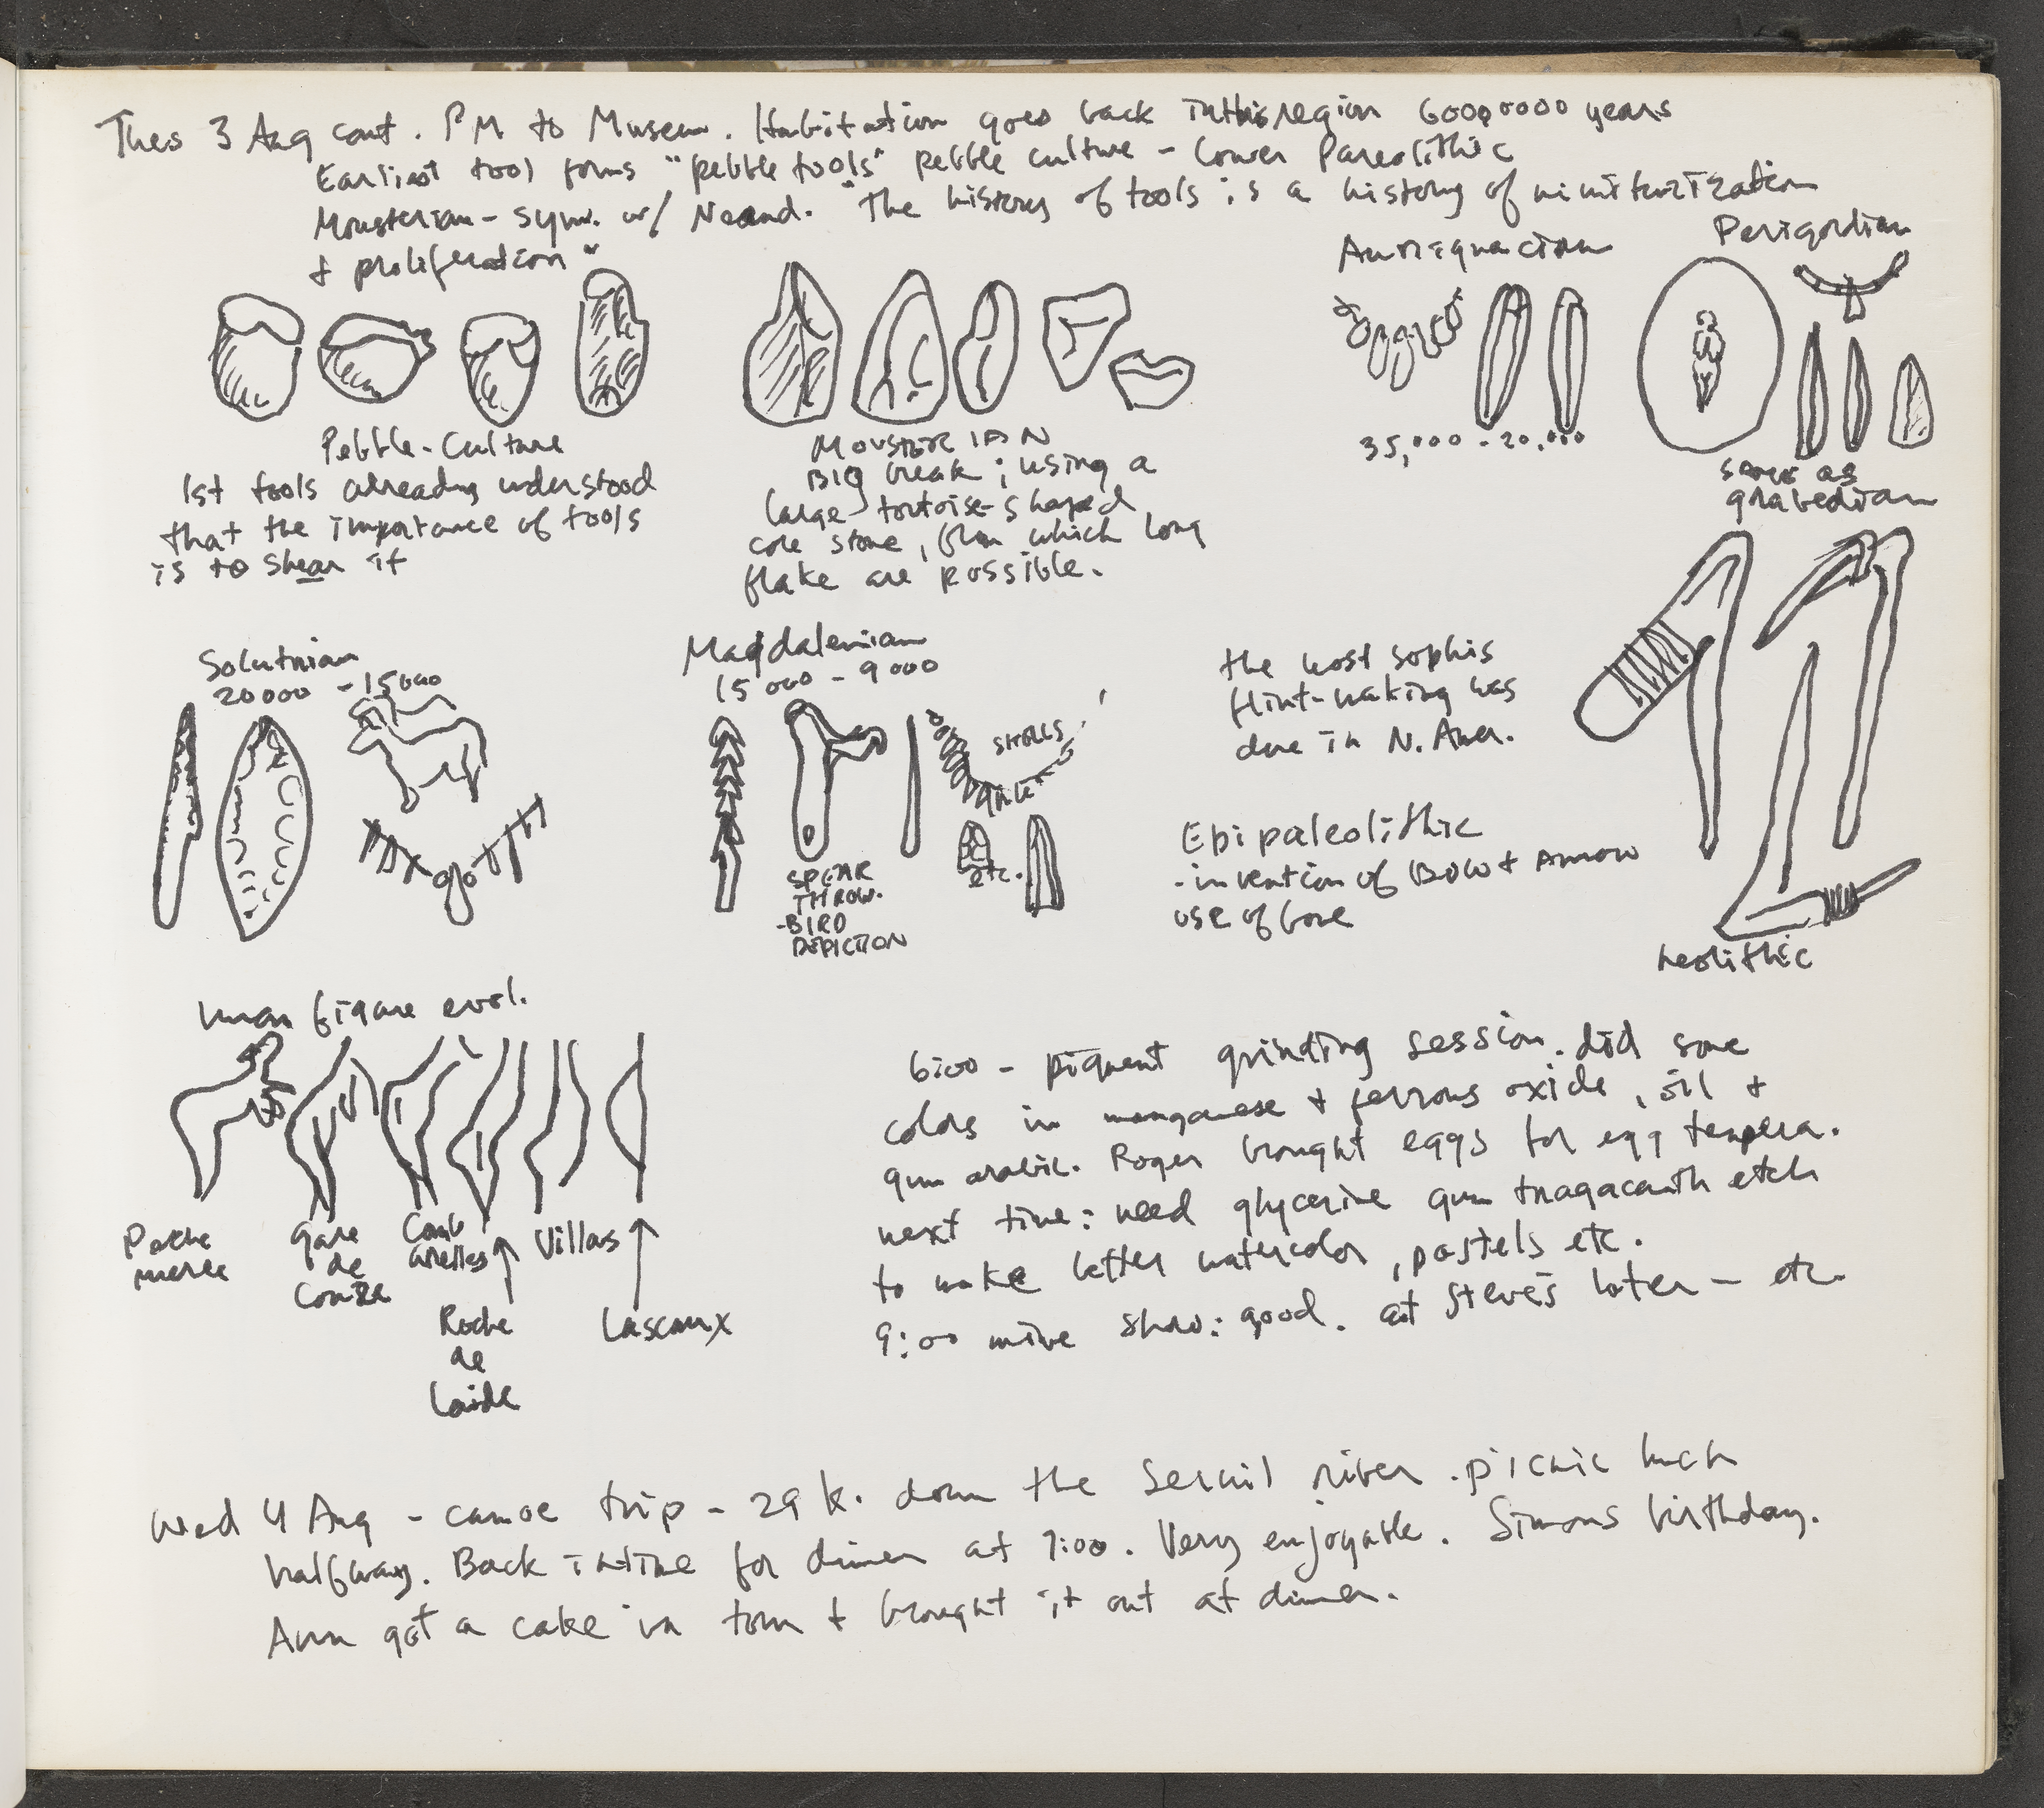 Thes 3 Aug cont. PM to Museum. Habitation goes back in this region 600,0000 years
Earliest tool forms "pebble tools" pebble culture - Lower Paleolithic
Mousterian - sym. w/ Neand. "The history of tools is a history of miniturization
+ proliferation"
Aurrignacian
Perigordian
Pebble-Culture
1st tools already understood
that the importance of tools
is to shear it
MOUSTERIAN
BIG break; using a
large tortoise-shaped
core stone, from which long
flake are possible.
35,000 - 20,000
same as
grabedian
Solutrian
20000 - 15000
Magdalenian
15000 - 9000
SHELLS
etc.
SPEAR
THROW.
-BIRD
DEPICTION
the most sophis
flint-making was
due in N. Amer.
Epipaleolithic
- invention of Bow + Arrow
use of bone
neolithic
human figure evol.
Peche
merle
gare
de
Couze
Comb
arelles
Roche
de
Lalide
Villars
Lascaux
6:00 - pigment grinding session. did some
colors in manganese + ferrous oxide, oil +
gum arabic. Roger brought eggs for egg tempera.
next time: need glycerine gum tragacanth etch
to make better watercolor, pastels etc.
9:00 mive show: good. at Steve's later - etc.
Wed 4 Aug - canoe trip - 29 k. down the river. picnic lunch
halfway. Back in time for dinner at 7:00. Very enjoyable. Simons birthday.
Ann got a cake in town + brought it out at dinner.